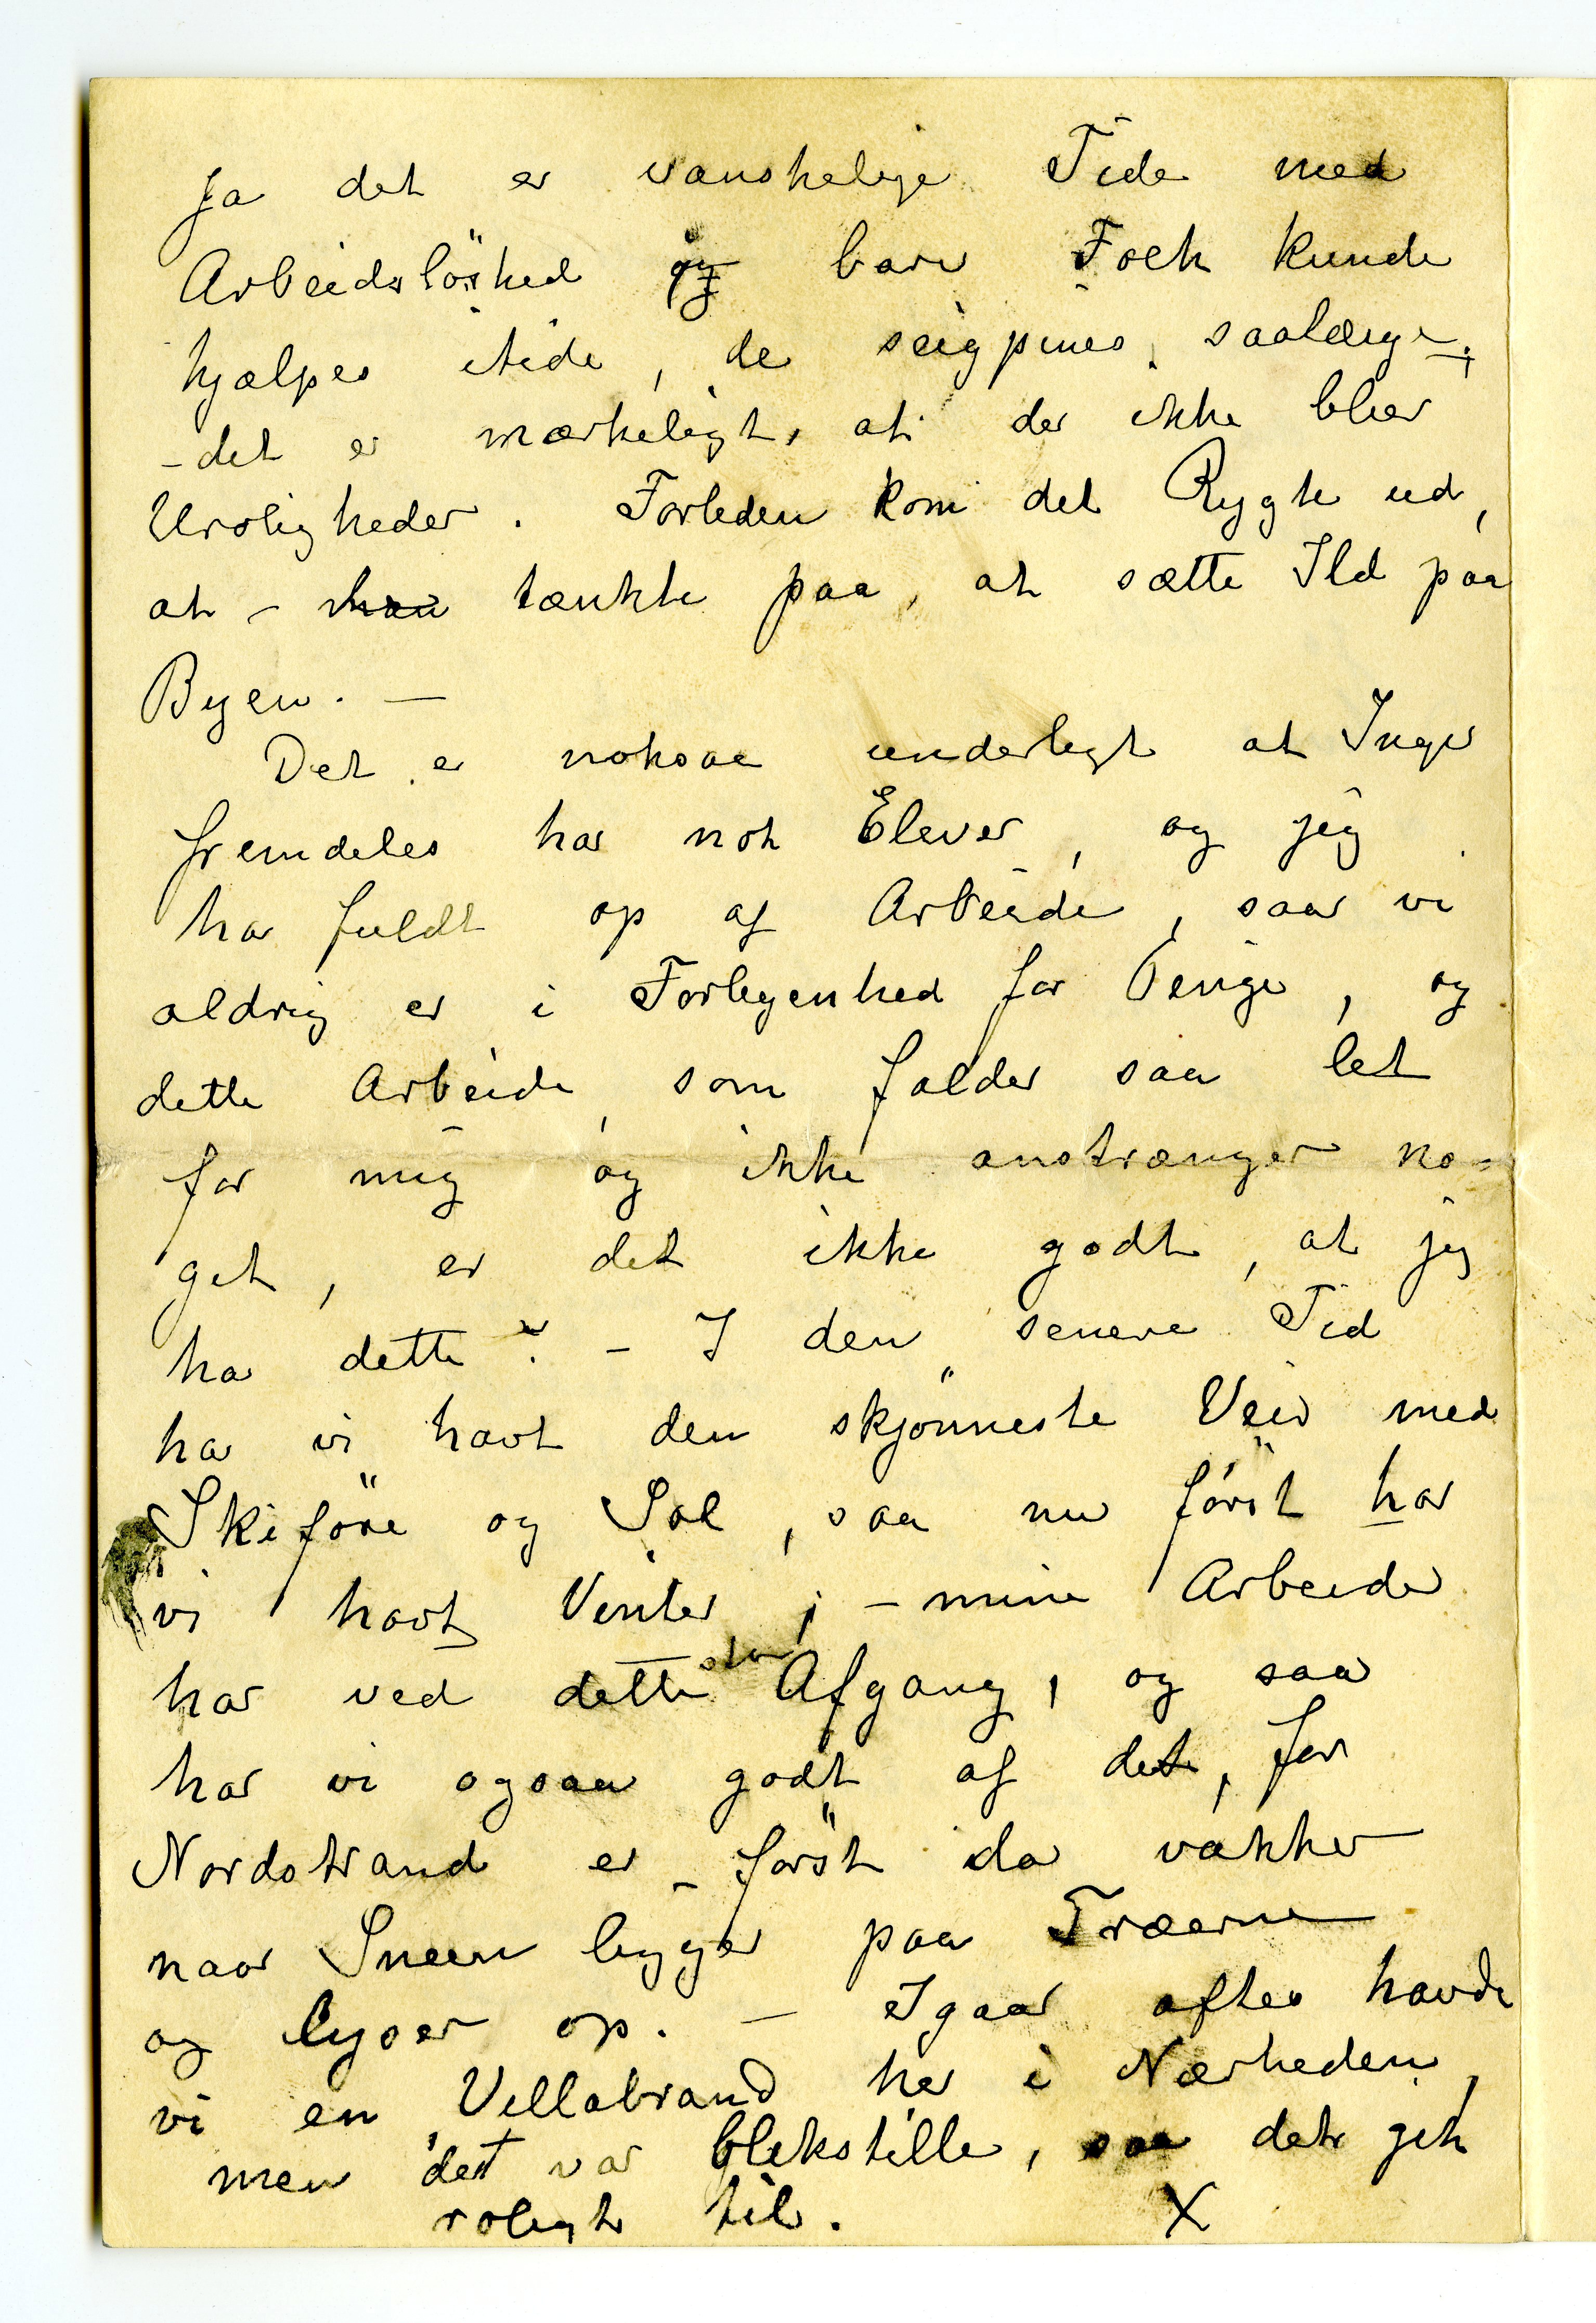 Ja det er vanskelige Tider med
Arbeidslöshed og bare Folk kunde
hjælpes itide, de seigpines saalænge;
- det er mærkeligt, at der ikke blier
Uroligheder. Forleden kom det Rygte ud,
at - man tænkte paa, at sætte Ild paa
Byen. —
Det er noksaa underligt at Inger
fremdeles har nok Elever, og jeg
har fuldt op af Arbeide, saa vi
aldrig er i Forlegenhed for Penge, og
dette Arbeide, som falder saa let
for mig og ikke anstrænger no=
get, er det ikke godt, at jeg
har dette? - I den senere Tid
har vi havt den skjönneste Veir med
Skiföre og Sol, saa nu först har
vi havt Vinter; - mine Arbeider
har ved dette stor Afgang, og saa
har vi ogsaa godt af det, for
Nordstrand er först da vakker
naar Sneen ligger paa Træerne
og lyser op. — Igaar aftes havde
vi en Villabrand her i Nærheden,
men det var blekstille, saa det gik
roligt til. X